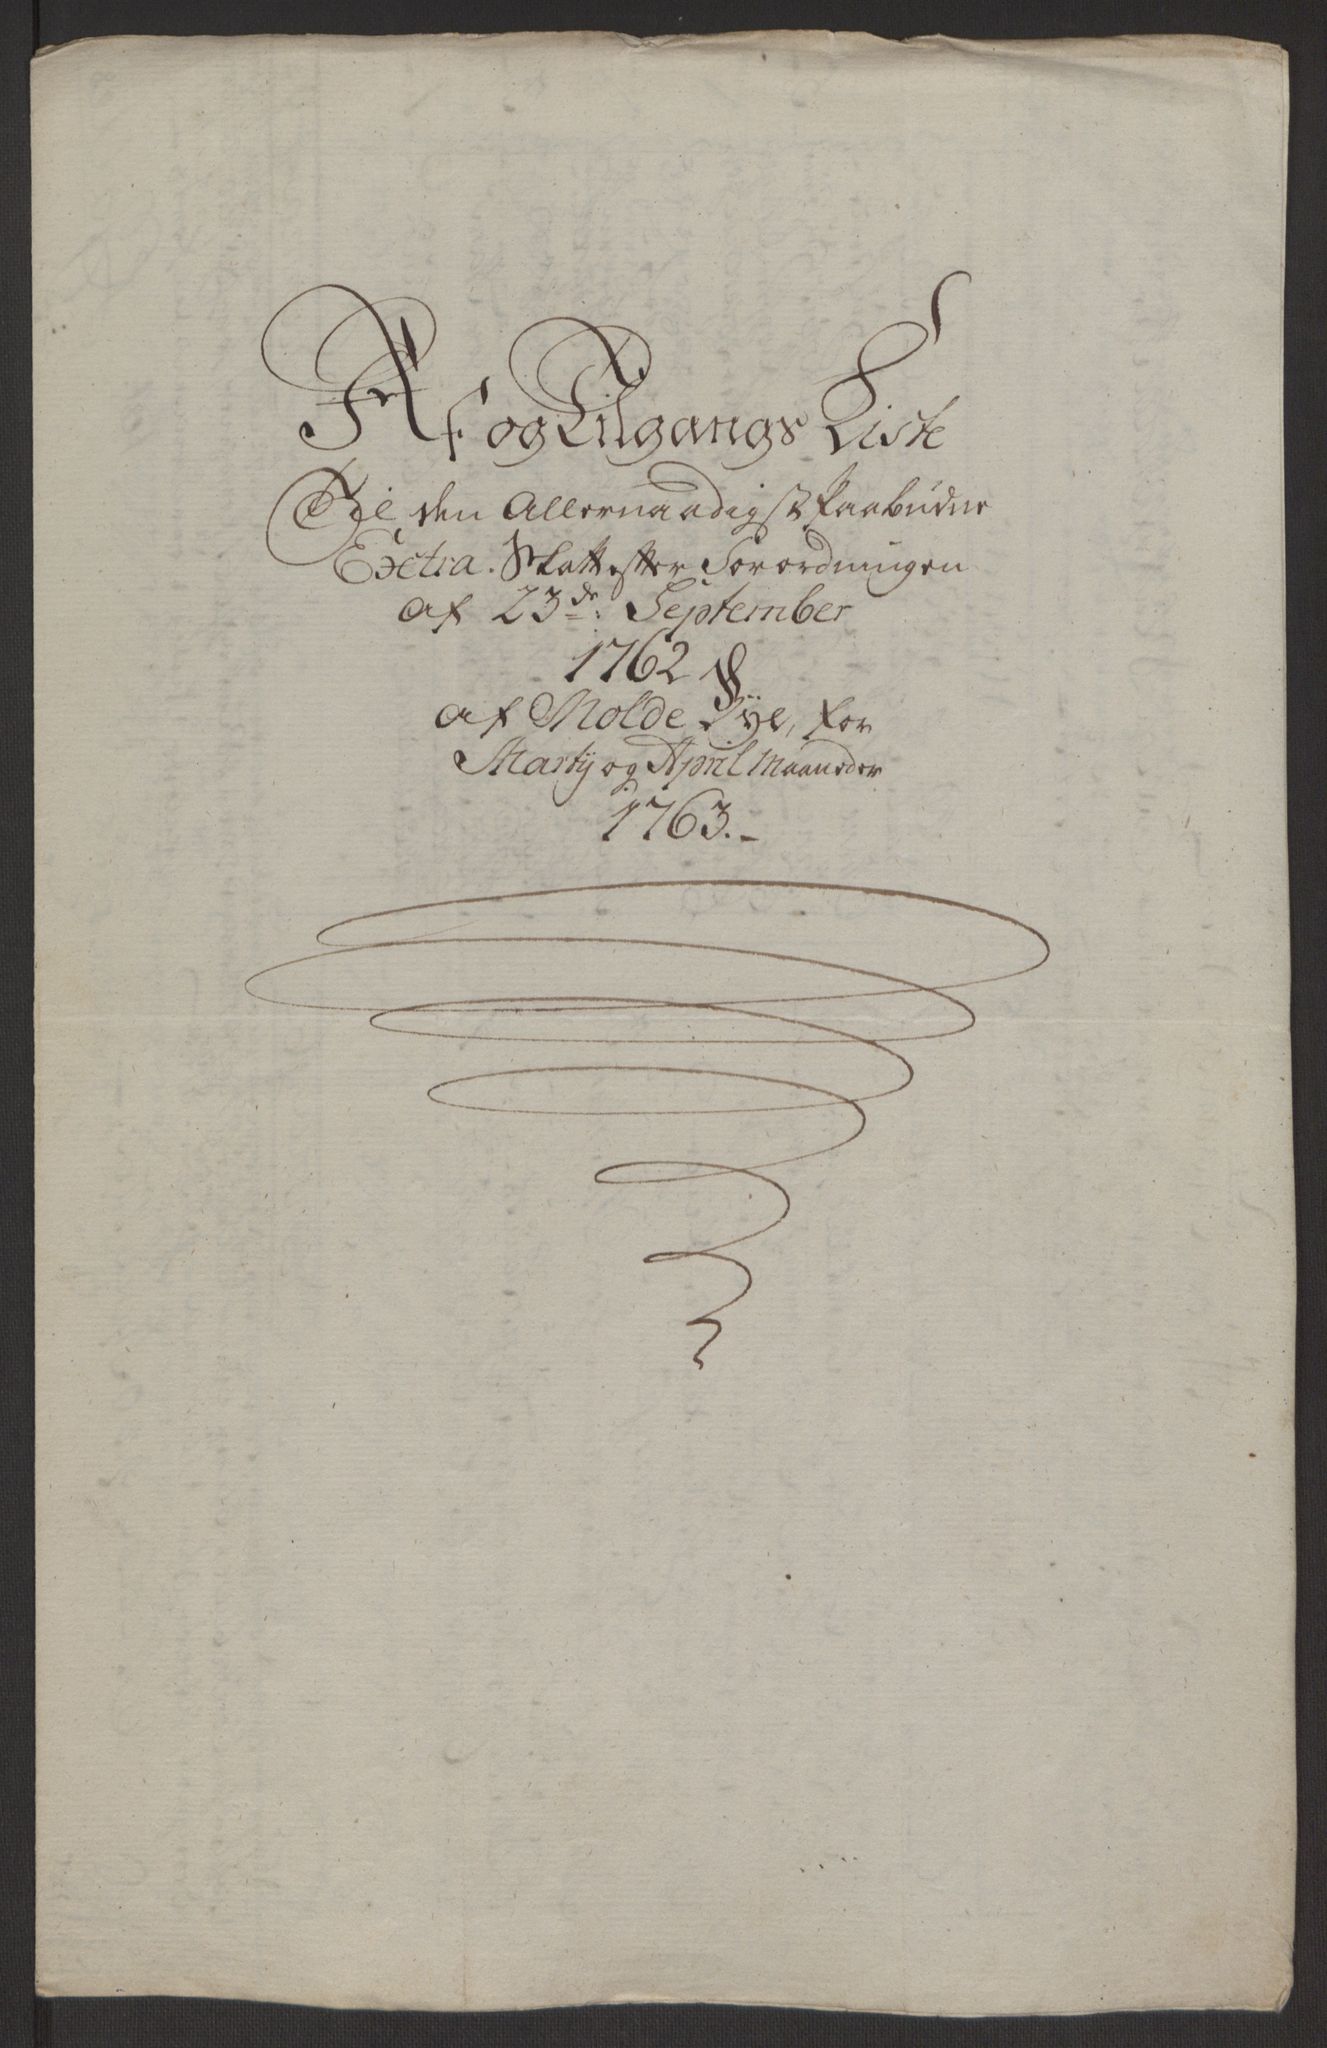 Af og Tilgangs Liste
Til den Allernaadigst Paabudne
Extra. Skatt efter Forordningen
af 23de: September
1762
af Molde Bye, for
Martij og April Maaneder
1763.-